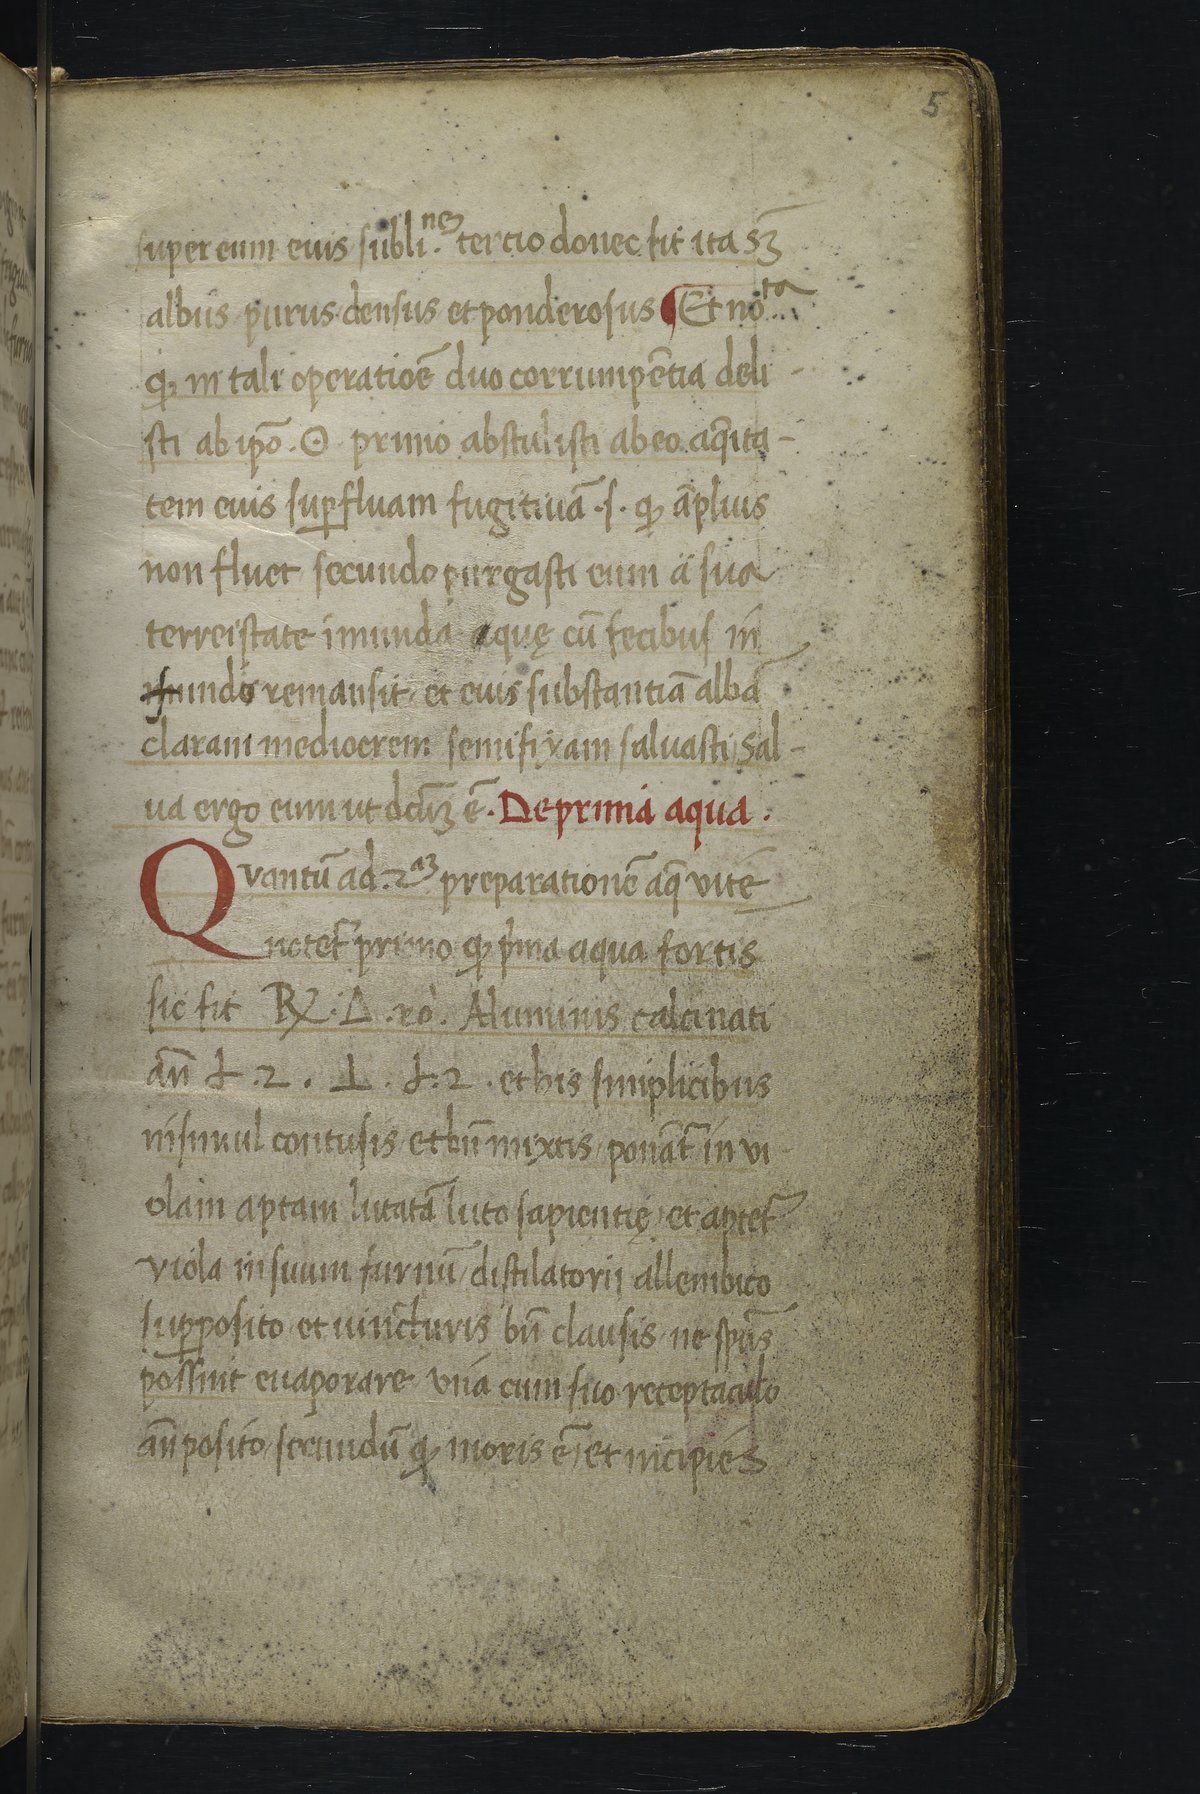 5
super eum eius subli.nẽ tercio donec fit ita sꝫ
albus purus densus et ponderosus ¶ Et noᵗᵃ
ꝙ in tali operatiõe duo corrumpẽtia deli-
sti ab ip̃o. ☉ primo abstulisti ab eo aq̃ita-
tem eius suꝑfluam fugitiuã .s. ꝙ ãplius
non fluet secundo purgasti eum à sua
terreistate imunda quę cũ fecibus in
fundo remansit et eius substantiã albã
claram mediocrem semifixam saluasti Sal-
ua ergo eum ut dc̃ꝫ ẽ. De prima aqua.
Quantũ ad .2.ᵃꝫ preparationẽ aq̃ vitę
notet᷑ primo ꝙ p̃ma aqua fortis
sic fit ℞. Δ .ro. Aluminis calcinati
añ .2. ⊥ .2. et his simplicibus
insimul contusis et bñ mixtis ponãt᷑ in vi
olam aptam lutatã luto sapientię et aptet᷑
viola in suum furnũ distilatorij allembico
suꝑposito et iuncturis bñ clausis ne sp̃us
possint euaporare vna cum suo receptaculo
añposito secundũ ꝙ moris ẽ et incipies